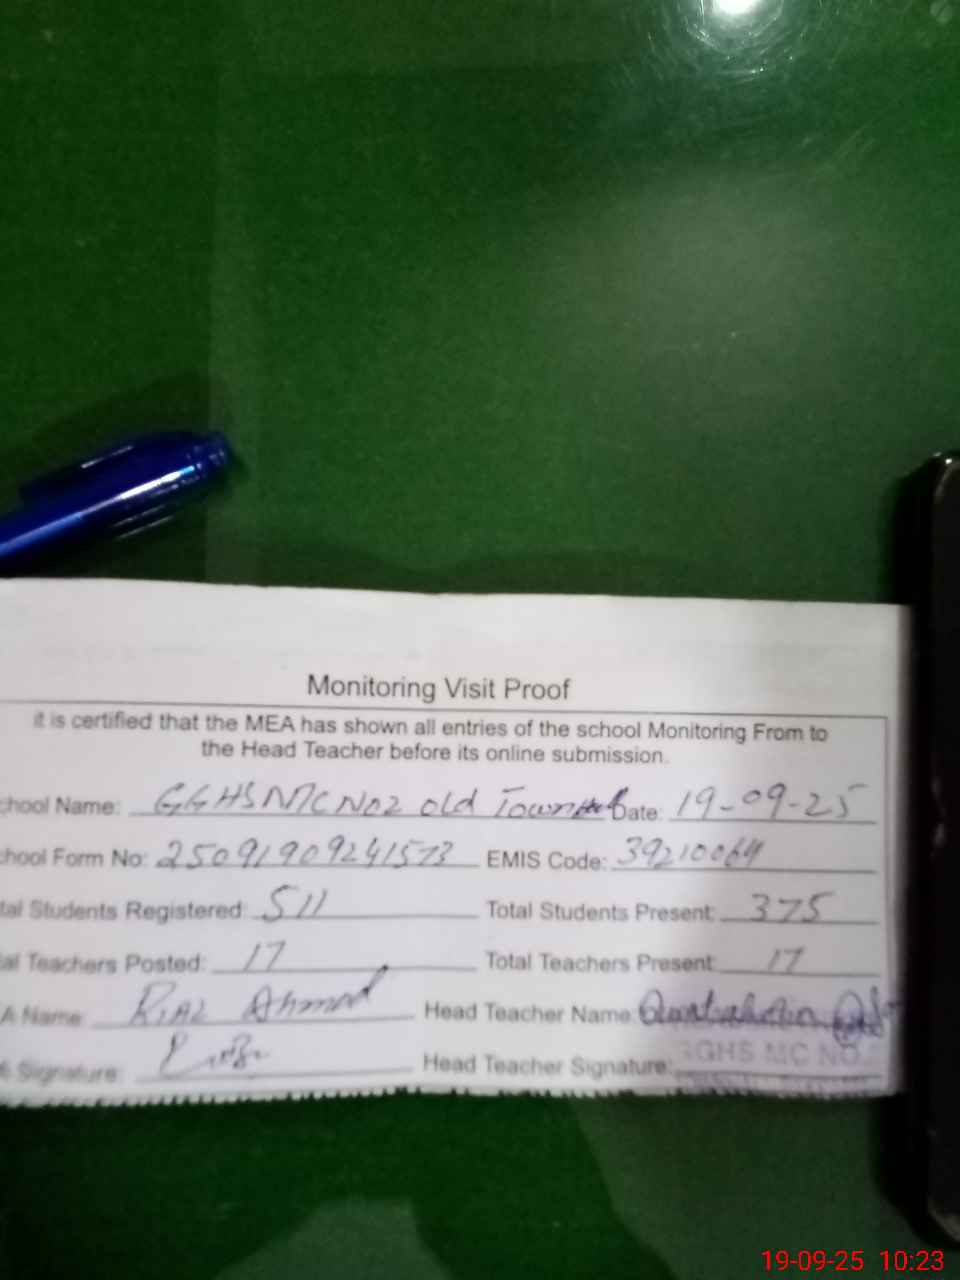 Monitoring Visit Proof
it is certified that the MEA has shown all entries of the school Monitoring From to
the Head Teacher before its online submission.
chool Name: GGHS MC No2 Old Town Date: 19-09-25
chool Form No: 25091909241573 EMIS Code: 39210064
tal Students Registered: 511 Total Students Present: 375
al Teachers Posted: 17 Total Teachers Present: 17
A Name: Riaz Ahmad Head Teacher Name:
Signature: Head Teacher Signature:
GGHS MC NO.
19-09-25 10:23